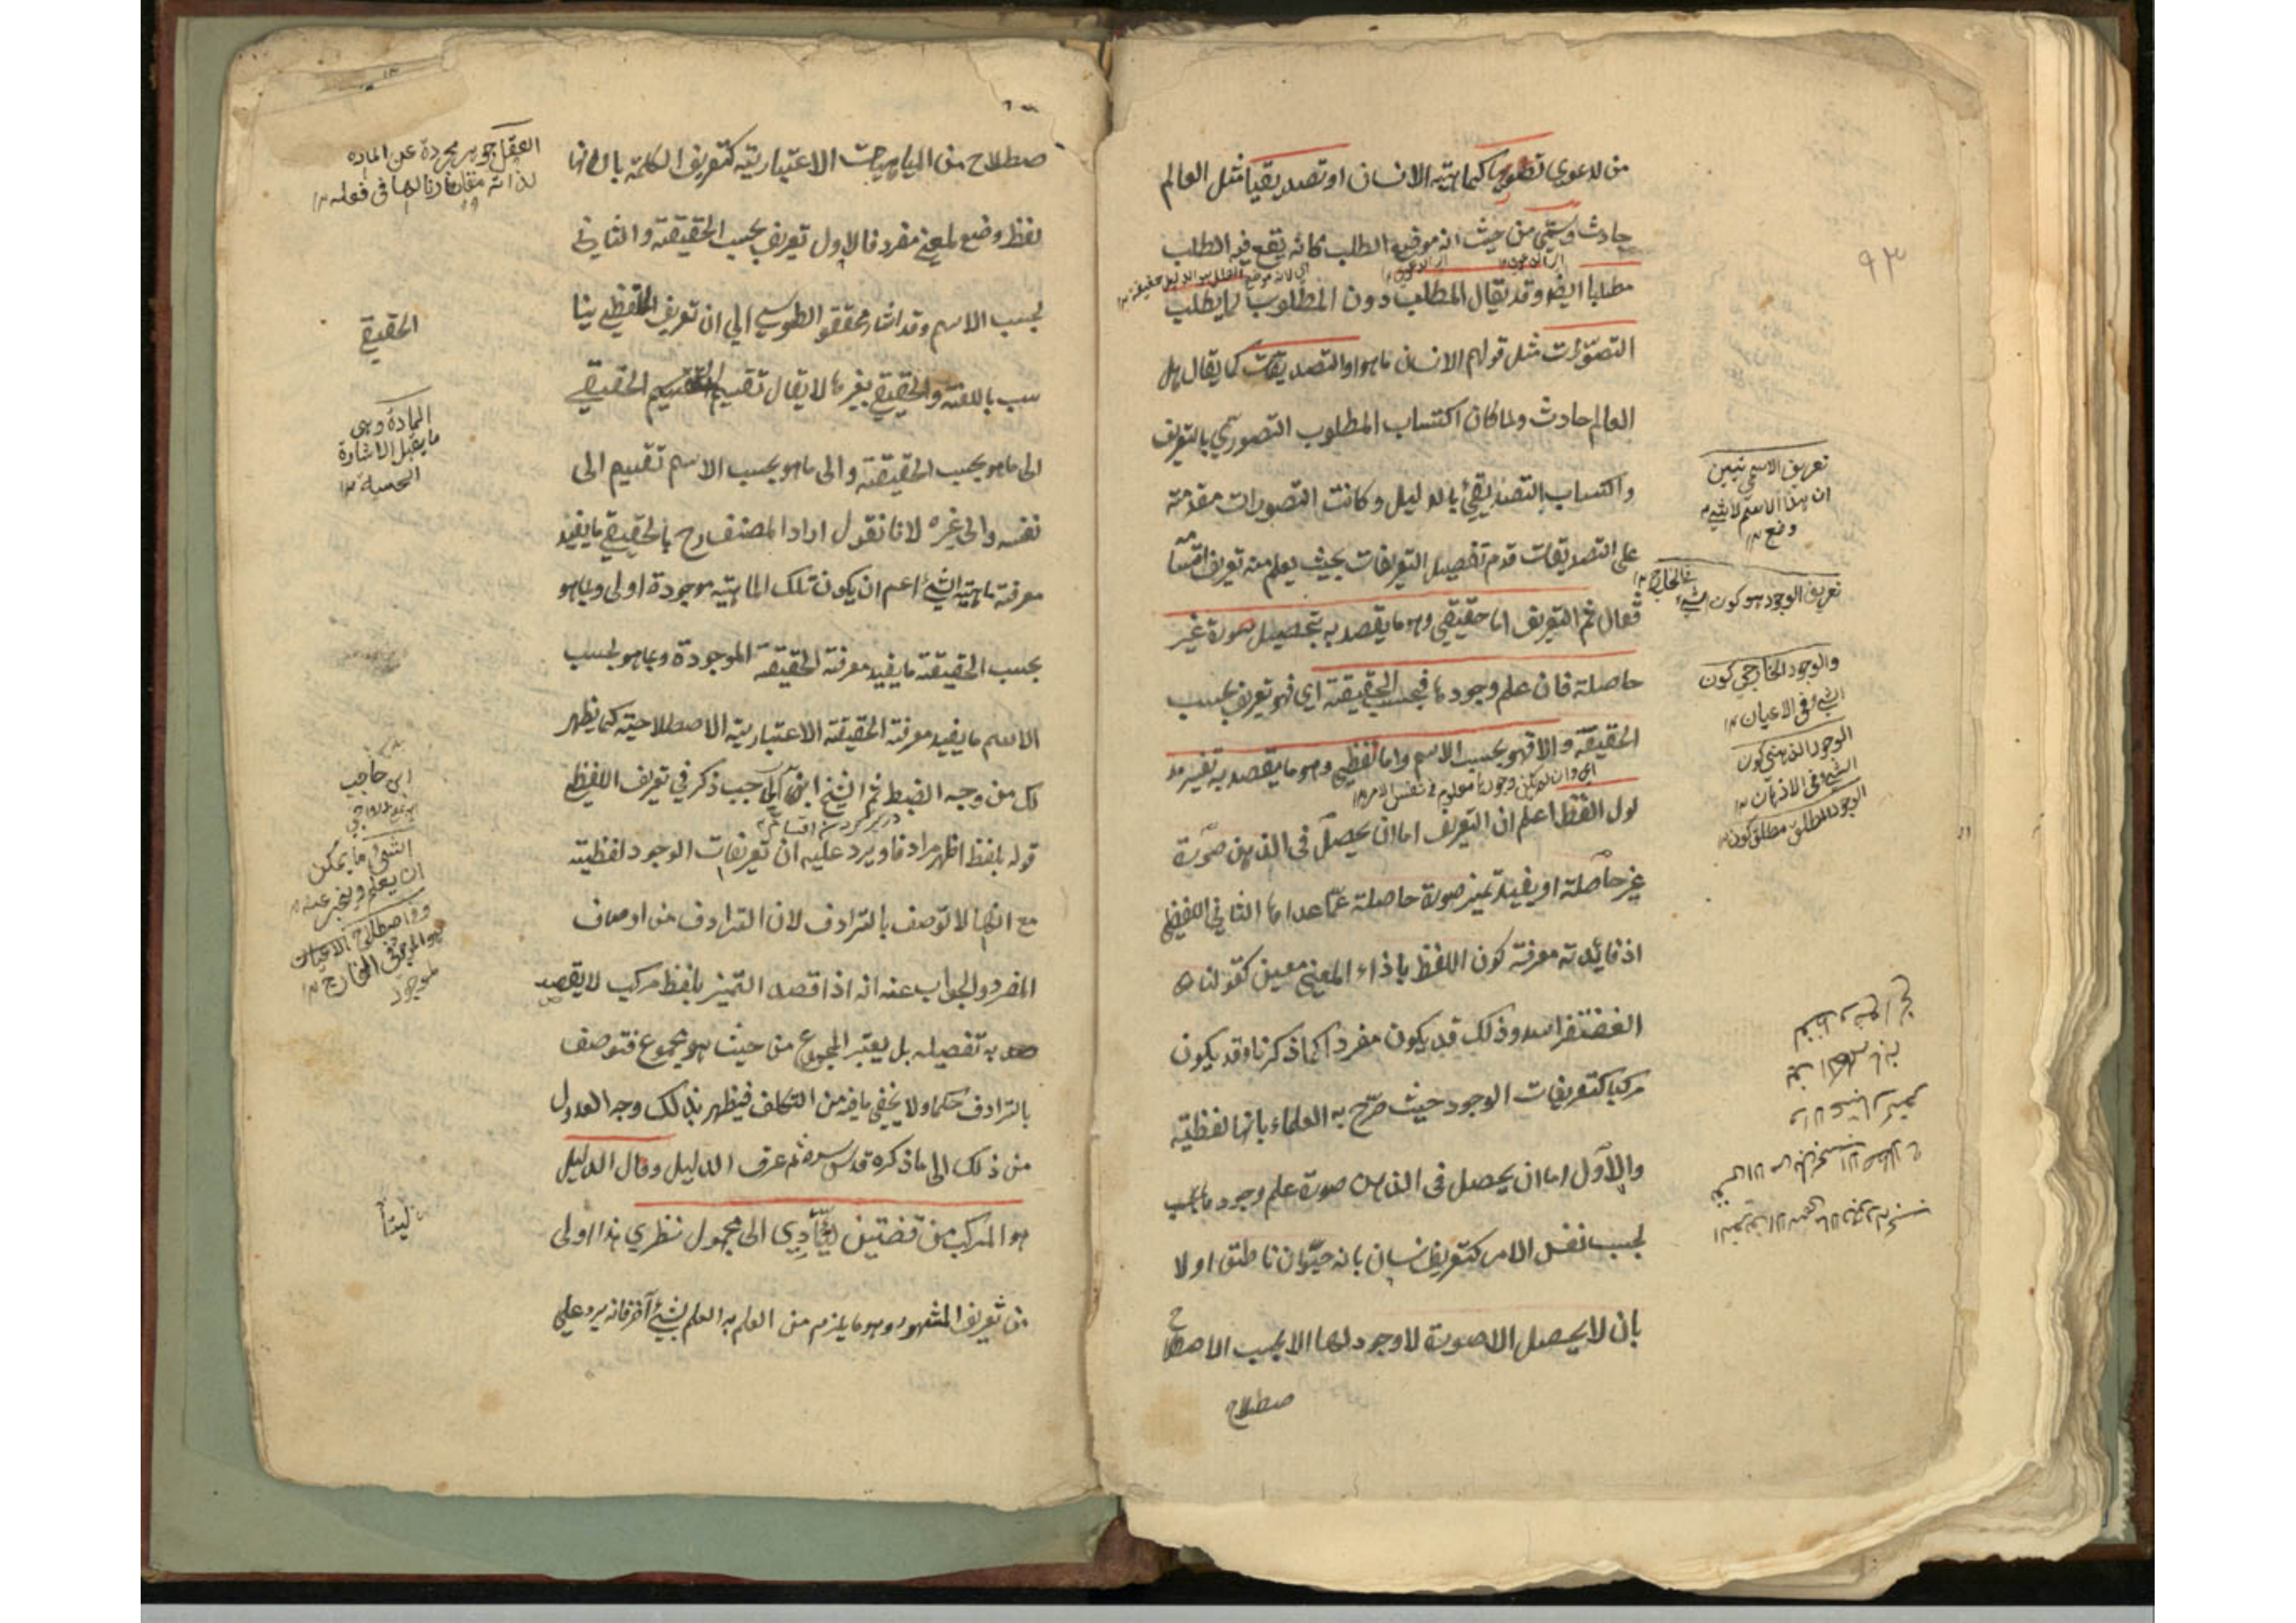 من لدعوى تصوريا كماهية الانسان او تصديقيا مثل العالم
حادث ويسمى من حيث انه موقع الطلب كانه يقع فيه الطلب
مطلبا ايضا وقد يقال المطلب دون المطلوب لما يطلب
التصورات مثل قولهم الانسان ما هو او التصديقات كما يقال هل
العالم حادث ولما كان اكتساب المطلوب التصوري بالتعريف
واكتساب التصديقي بالدليل وكانت التصورات مقدمة
على التصديقات قدم تفصيل التعريفات بحيث يعلم منه تعريف اقسامه
فقال ثم التعريف اما حقيقي وهو ما يقصد به تحصيل صورة غير
حاصلة فان علم وجودها فبحسب الحقيقة اي فهو تعريف بحسب
الحقيقة والا فهو بحسب الاسم واما لفظي وهو ما يقصد به تفسير مد
لول اللفظ اعلم ان التعريف اما ان يحصل في الذهن صورة
غير حاصلة او يفيد تميز صورة حاصلة عما عداها الثاني اللفظي
اذ فائدته معرفة كون اللفظ باذاء المعنى معين كقولنا
الغضنفر اسد وذلك قد يكون مفردا كما ذكرنا وقد يكون
مركبا كتعريفات الوجود حيث صرح به العلماء بانها لفظية
والاول اما ان يحصل في الذهن صورة علم وجودها بحسب
بحسب نفس الامر كتعريف انسان بانه حيوان ناطق او لا
بان لا يحصل الا صورة لا وجود لها الا بحسب الاصطلاح
صطلاح
٩٣
تعريف الاسمي تبيين
ان هذا الاسم لاي شيء
وضع ١٢
تعريف الوجود هو كون الشيء في الخارج ١٢
والوجود الخارجي كون
الشيء في الاعيان ١٢
الوجود الذهني كون
الشيء في الاذهان ١٢
الوجود المطلق مطلق كون ١٢
صطلاح من الماهيات الاعتبارية كتعريف الكلمة بانها
لفظ وضع لمعنى مفرد فالاول تعريف بحسب الحقيقة والثاني
بحسب الاسم وقد اشار محقق الطوسي الى ان تعريف اللفظي ينا
سب باللغة والحقيقي بغيرها لا يقال تقسيم الحقيقي
الى ما هو بحسب الحقيقة والى ما هو بحسب الاسم تقسيم الى
نفسه والى غيره لانا نقول اراد المصنف رح بالحقيقي ما يفيد
معرفة ماهية الشيء اعم ان يكون تلك الماهية موجودة او لا وبما هو
بحسب الحقيقة ما يفيد معرفة الحقيقة الموجودة وبما هو بحسب
الاسم ما يفيد معرفة الحقيقة الاعتبارية الاصطلاحية كما يظهر
لك من وجه الضبط ثم الشيخ ابن الحاجب ذكر في تعريف اللفظي
قوله بلفظ اظهر مرادفا ويرد عليه ان تعريفات الوجود لفظية
مع انها لا توصف بالترادف لان الترادف من اوصاف
المفرد والجواب عنه انه اذا قصد التميز بلفظ مركب لا يقصد
به تفصيله بل يعتبر المجموع من حيث هو مجموع فتوصف
بالترادف حكما ولا يخفى ما فيه من التكلف فيظهر بذلك وجه العدول
من ذلك الى ما ذكره قدس سره ثم عرف الدليل وقال الدليل
هو المركب من قضتين للتأدي الى مجهول نظري هذا اولى
من تعريف المشهور وهو ما يلزم من العلم به العلم بشيء آخر فانه يرد على
العقل جوهر مجردة عن المادة
لذاته مقارنا لها في فعله ١٢
الحقيقي
المادة وهي
ما يقبل الاشارة
الحسية ١٢
ابن حاجب
الشيء ما يمكن
ان يعلم ويخبر عنه ١٢